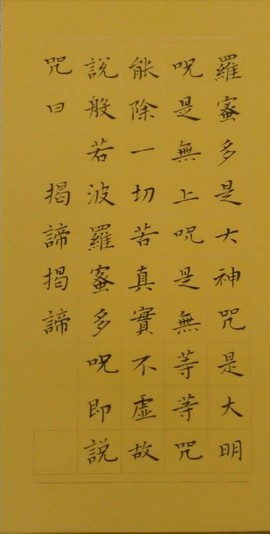 羅蜜多是大神咒是大明
呪是無上呪是無等等咒
能除一切苦真實不虛故
說般若波羅蜜多呪即說
咒曰 揭諦揭諦